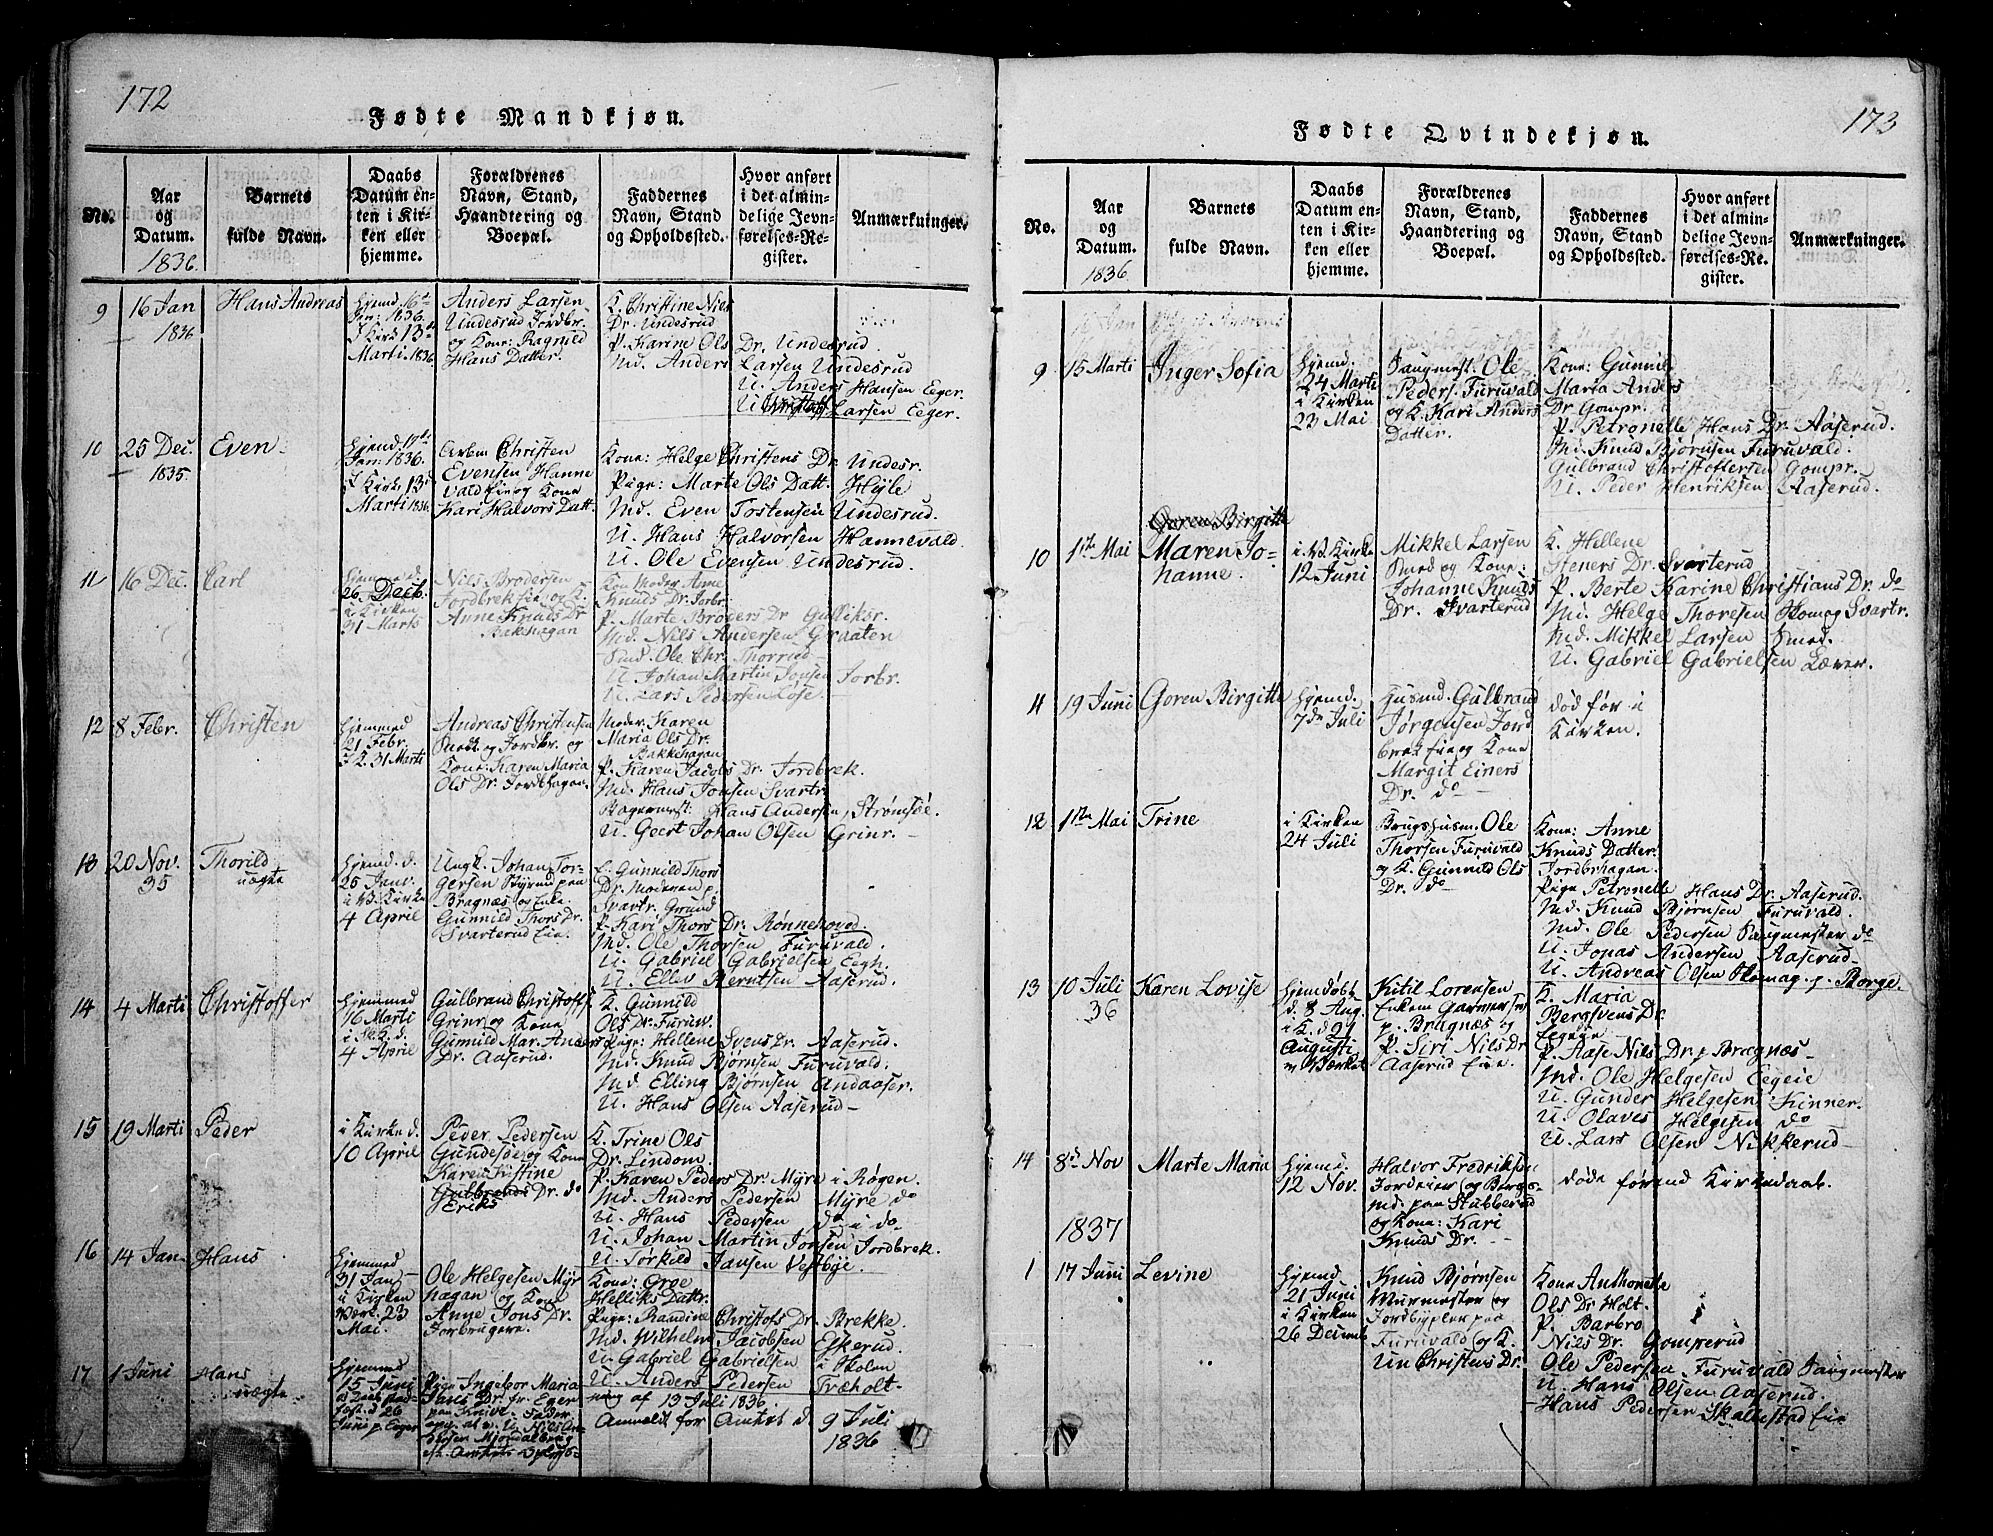 172
Fødte Mandkjøn.
No.
Aar og Datum.
1836.
Barnets fulde Navn.
Daabs Datum enten i Kirken eller hjemme.
Forældrenes Navn, Stand, Haandtering og Boepæl.
Faddernes Navn, Stand og Opholdssted.
Hvor anført i det almindelige Jevnførelses-Register.
Anmærkninger.
9
16 Jan
1836
Hans Andreas
Hjemd. 16de
Jan: 1836.
I Kirk 13de
Marti 1836
Anders Larsen
Undesrud Jordbr.
og Kone: Ragnild
Hans Datter.
K. Christine Nils
Dr. Undesrud
P. Karine Ols Dr. Undesrud
Md. Anders Larsen Undesrud
U. Anders Hansen Eeger.
U. Larsen Eeger.
10
25 Dec.
1835.
Even
Jan: 1836.
I Kirk. 13de
Marti 1836
Christen
Evensen Hanne
vald Eie og Kone
Kari Halvors Datt.
Kone: Helge Christens Dr. Undesr.
Pige: Marte Ols Datt. Høyle
Md. Even Tostensen Undesrud.
U. Hans Halvorsen Hannevald.
U. Ole Evensen Undesrud.
11
16 Dec.
Carl
26 Decb.
i Kirken
31 Marts
Nils Brodersen
Anne Knuds Dr
Bakehagan
Knuds Dr. Jorbr.
P. Marte Broders Dr Gulliksr.
Md. Nils Andersen Graaten
Smd. Ole Chr. Thorrud
U Johan Martin Jonsen Jorbr.
U. Lars Pedersen Løse.
12
8 Febr.
Christen
Hjemmed
21 Febr.
I K. 31 Marti
Andreas Christensen
Smed og Jordbr. og
Kone: Karen Maria
Ols Dr. Jordbhagan.
Moder. Karen
Maria Ols Dr.
Bakkehagan
P. Karen Jacobs Dr. Jordbrek.
Md. Hans Jonsen Svartr.
Bagermest: Hans Andersen, Strømsøe.
U. Geert Johan Olsen Grinr.
13
20 Nov.
35
Thorild
uægte
Hjemd. d.
25 Janv.
i V. Kirke
4 April
Ungk. Johan Tor-
gersen paa
Bragnæs og Enke
Gunnild Thors Dr.
Svarterud Eie.
E. Gunnild Thors
Dr. Moderen p.
Svartr. Grund
P. Kari Thors Dr. Rønnehoved
Md. Ole Thorsen Furuvald.
U. Gabriel Gabrielsen Eegh.
U. Ellev Berntsen Aaserud.
14
4 Marti
Christoffer
Hjemmed
16 Marti
i K. d.
4 April
Gulbrand Christoffs.
Grinr og Kone
Gunnild Mar. Anders
Dr. Aaserud.
K. Gunnild
Ols Dr. Furuv.
Pige: Hellene Svens Dr. Aaserud.
Md. Knud Bjørnsen Furuvald.
Md. Elling Bjørnsen Andaaser.
U. Hans Olsen Aaserud
15
19 Marti
Peder
i Kirke d.
10 April
Peder Pedersen
Gundesøe og Kone
Karen Kjstine
Gulbrands Dr. do
Eriks
K. Trine Ols
Dr. Lindom.
P. Karen Peders Dr. Myre i Røgen.
Md. Anders Pedersen Myre do
U. Hans Pedersen do i do
U. Johan Martin Jonsen Jordbrek.
U. Torkild Jansen Vestbye.
16
14 Jan.
Hans
Hjemmed
31 Jan
i Kirken
23
Mai.
Ole Helgesen Myr
hagan og Kone
Anne Jons Dr.
Jorbrugere.
Kone: Groe
Helliks Dattr.
Pige: Randine Christofs Dr. Brekke.
Md. Wilhelm Jacobsen Eskerud.
U. Gabriel Gabrielsen i Skolen
U. Anders Pedersen Træholt
17
1 Juni
Hans
uægte
Hjemmed
15 Juni
26
Juni p. Eeger
Pige Ingebor Maria
Jans Dr. fr. Eger
af 13 Juli 1836
Anmeldt for Amtet d. 9 Juli
1836
173
Fødte Qvindekjøn.
No.
Aar og Datum.
1836
Barnets fulde Navn.
Daabs Datum enten i Kirken eller hjemme.
Forældrenes Navn, Stand, Haandtering og Boepæl.
Faddernes Navn, Stand og Opholdssted.
Hvor anført i det almindelige Jevnførelses-Register.
Anmærkninger.
9
15 Marti
Inger Sofia
Hjemd.
24 Marti
i Kirken
23 Mai
Saugmest. Ole
Peders. Furuvald
og K. Kari Anders
Datter.
Kone: Gunnild
Maria Anders
Dr Gompr.
P. Petronelle Hans Dr. Aaserud.
Md. Knud Bjørnsen Furuvald.
Gulbrand Christoffersen Gompr.
U. Peder Henriksen Aaserud.
10
1ste Mai
Goren Birgitte
Maren Jo-
hanne.
i V. Kirke
12 Juni
Mikkel Larsen
Smed og Kone:
Johanne Knuds
Dr. Svarterud
K. Hellene
Steners Dr. Svarterud
P. Berte Karine Christians Dr. do
Md. Helge Thoresen Skomag Svartr.
Md. Mikkel Larsen Smed.
U. Gabriel Gabrielsen Lærer.
11
19 Juni
Goren Birgitte
Hjemd.
7de Juli
Husmd. Gulbrand
Jørgensen Jord
brek Eie og Kone
Margit Einers
Dr. do
død før i
Kirken.
12
1ste Mai
Trine
i Kirken
24 Juli
Brugshusm. Ole
Thorsen Furuvald
og K. Gunnild Ols
Dr. do
Kone: Anne
Knuds Datter.
Jordbrhagan.
Pige Petronelle Hans Dr. Aaserud.
Md. Knud Bjørnsen Furuvald.
Md. Ole Pedersen Saugmester do
U. Jonas Andersen Aaserud.
U. Andreas Olsen Skomag. p. Borge.
13
10 Juli
36
Karen Lovise
Hjemdøbt
d. 8 Aug.
i K. d 21
Augusti
Kitil Lorensen
p. Bragnæs og
P. Siri Nils Dr
Aaserud Eie.
K. Maria
Bergsvens Dr.
Eegeie
P. Aase Nils Dr. p Bragnæs
Md. Ole Helgesen Eegeie
U. Gunder Helgesen Kinner.
U. Olaves Helgesen do
U. Lars Olsen Nikkerud
14
8de Nov
Marte Maria
Hjemd.
12 Nov.
Halvor Fredriksen
Jordeier og Bergs-
md. paa Stubberud
og Kone: Kari
Knuds Dr.
døde førend Kirkedaab.
1837
1
17 Juni
Levine
Hjemd
21 Juni
i Kirken
26 Decemb
Knud Bjørnsen
Murmester og
paa
Furuvald og K.
Christens Dr.
Kone Anthonette
Ols Dr Holt.
P. Barbro
Nils Dr. Gomperud
Ole Pedersen Furuvald Saugmester
U. Hans Olsen Aaserud.
Hans Pedersen Skallestad Eie